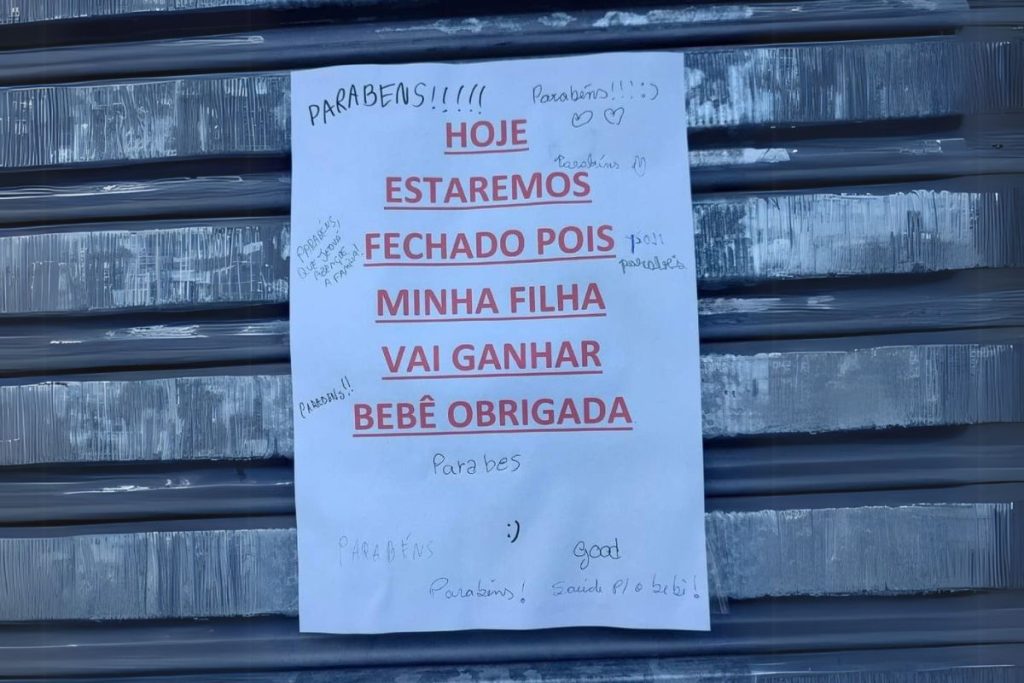 PARABENS!!!!!
Parabéns!!! :)
HOJE
Parabéns
ESTAREMOS
PARABÉNS,
QUE JEOVÁ
A FAMÍLIA!
FECHADO POIS
MINHA FILHA
VAI GANHAR
PARABENS!!
BEBÊ OBRIGADA
Parabes
:)
PARABÉNS
good
Parabéns!
Saúde p/ o bebê!